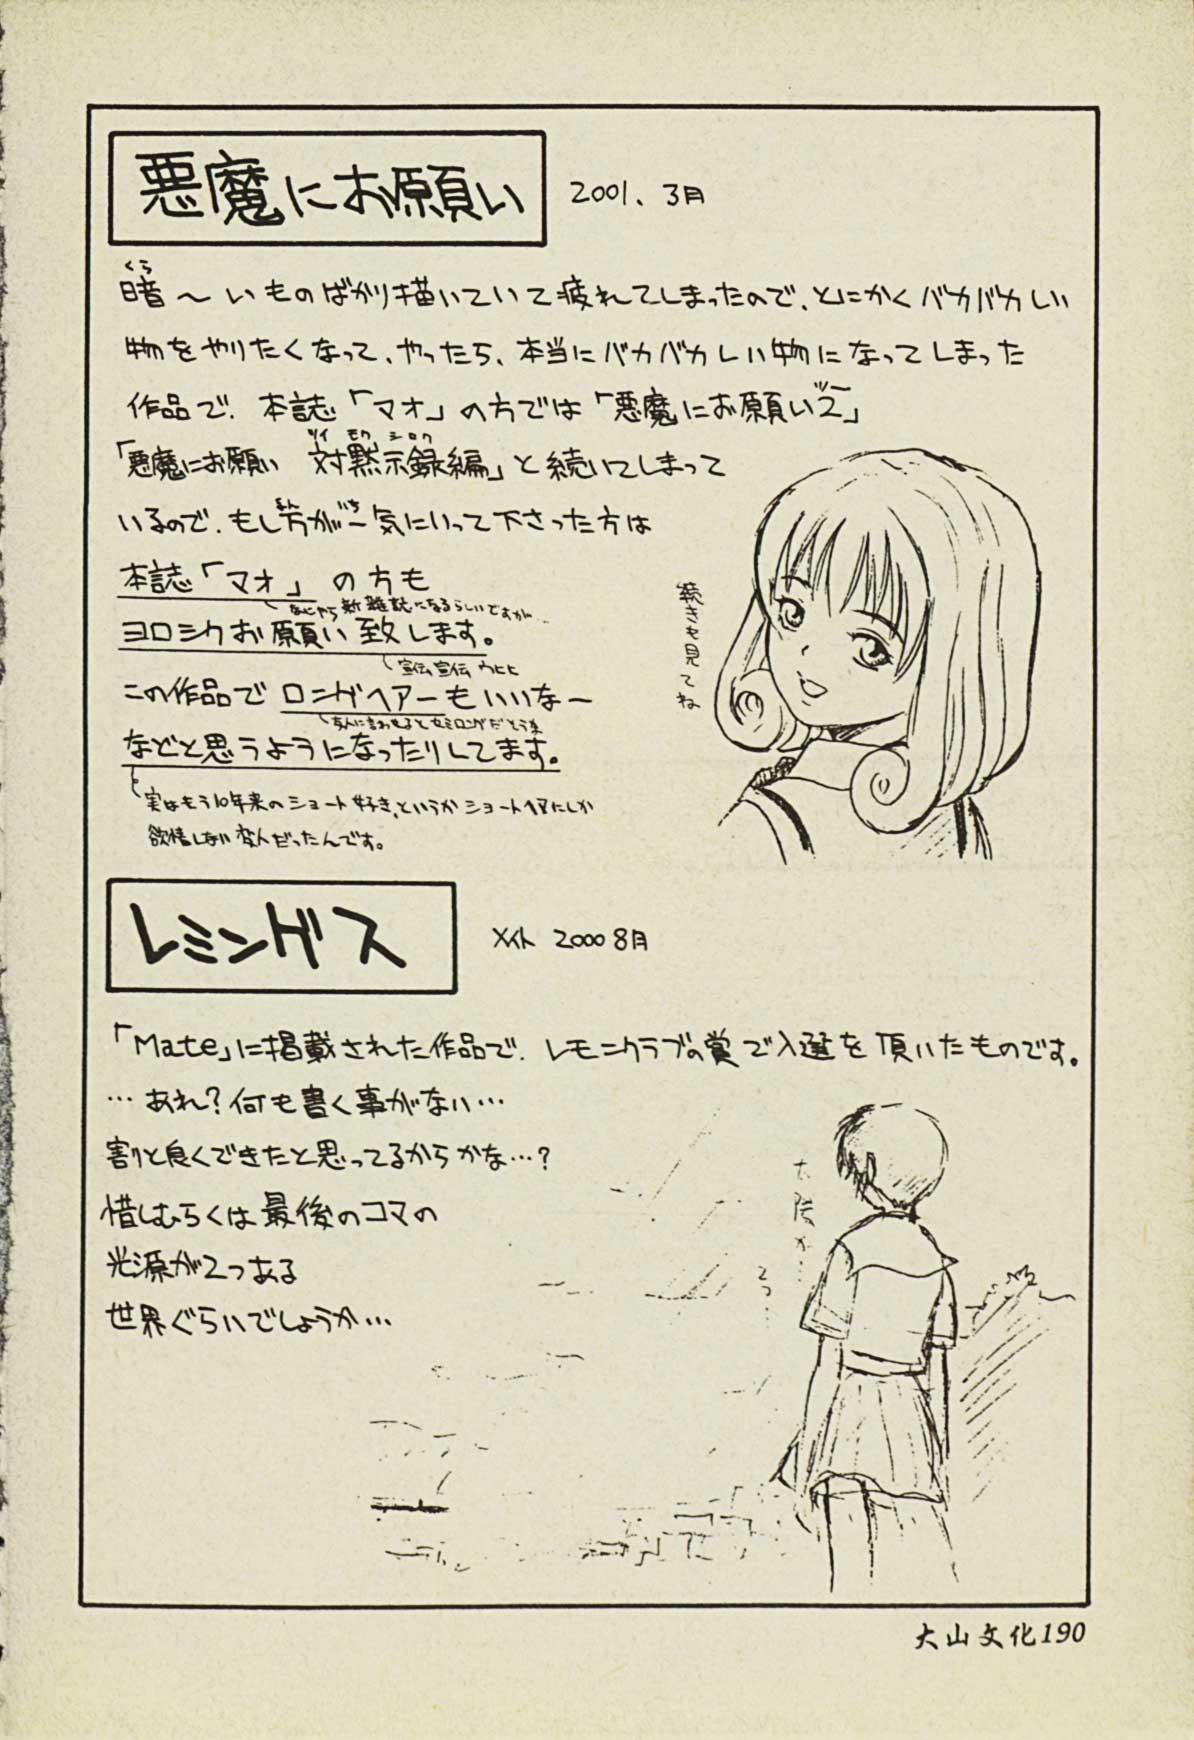 悪魔にお願い
2001、3月
暗～いものばかり描いていて疲れてしまったので、とにかくバカバカしい
くら
物をやりたくなって、やったら、本当にバカバカしい物になってしまった
作品で、本誌「マオ」の方では「悪魔にお願い2」
ツー
「悪魔にお願い 対黙示録編」と続いてしまって
ツイ モク シロク
いるので、もし万が一気にいって下さった方は
まん いち
本誌「マオ」の方も
新雑誌になるらしいですが…
ヨロシクお願い致します。
宣伝宣伝 ウヒヒ
この作品でロングヘアーもいいなー
などと思うようになったりしてます。
実はもう10年来のショート好き、というかショートヘアにしか
欲情しない変人だったんです。
続きも見てね
レミングス
メイト 2000 8月
「Mate」に掲載された作品で、レモンクラブの賞で入選を頂いたものです。
…あれ?何も書く事がない…
割と良くできたと思ってるからかな…?
惜しむらくは最後のコマの
光源が2つある
世界ぐらいでしょうか…
太陽が…
2つ…
大山文化190